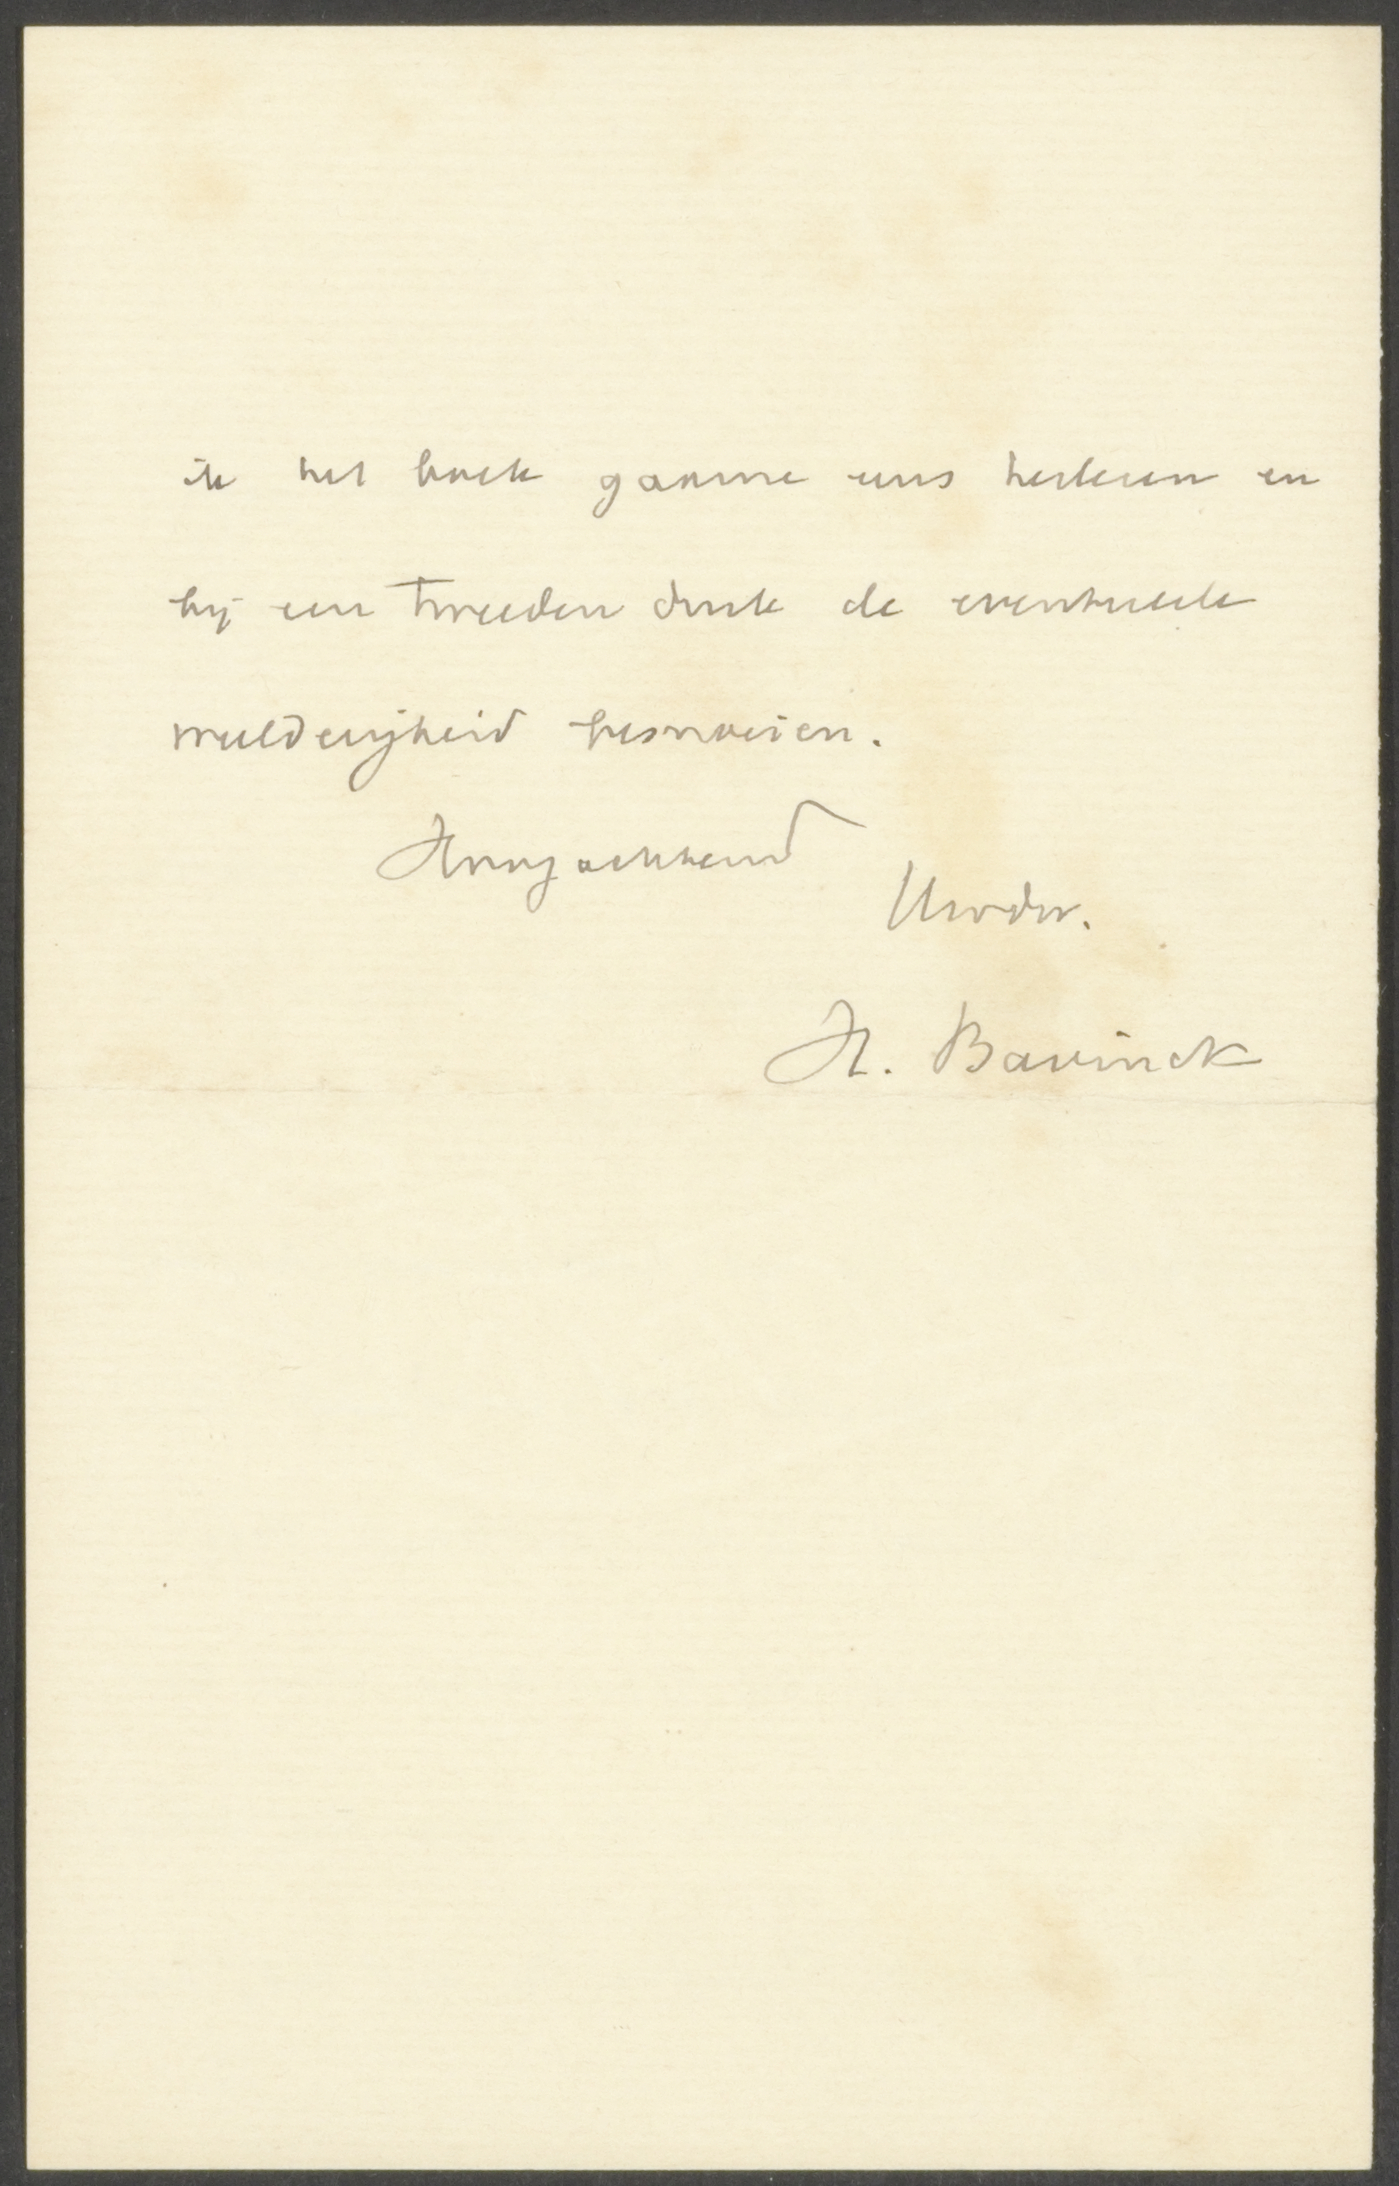 ik het boek gaarne eens herlezen en
bij een tweeden druk de eventueele
weelderigheid besnoeien.
Hoogachtend
Uw dw.
H. Bavinck